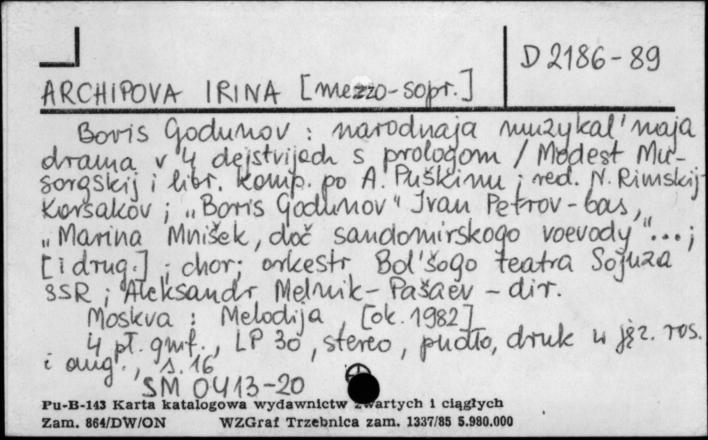 D 2186-89
ARCHIPOVA IRINA [mezzo-sopr.]
Boris Godunov : narodnaja muzykal'naja
drama v 4 dejstvijach s prologom / Modest Mu-
sorgskij i libr. komp. po A. Puškinu ; red. N. Rimskij-
Korsakov ; „Boris Godunov" Ivan Petrov - bas,
„Marina Mnišek, doč sandomirskogo voevody" ... ;
[i drug.] ; chor ; orkestr Bol'šogo teatra Sojuza
SSR ; Aleksandr Melnik-Pašaev - dir.
Moskva : Melodija, [ok. 1982]
4 pł. gmf., LP 30, stereo, pudło, druk w jęz. ros.
i ang., s. 16
SM 0413-20
Pu-B-143 Karta katalogowa wydawnictw zwartych i ciągłych
Zam. 864/DW/ON WZGraf Trzebnica zam. 1337/85 5.980.000